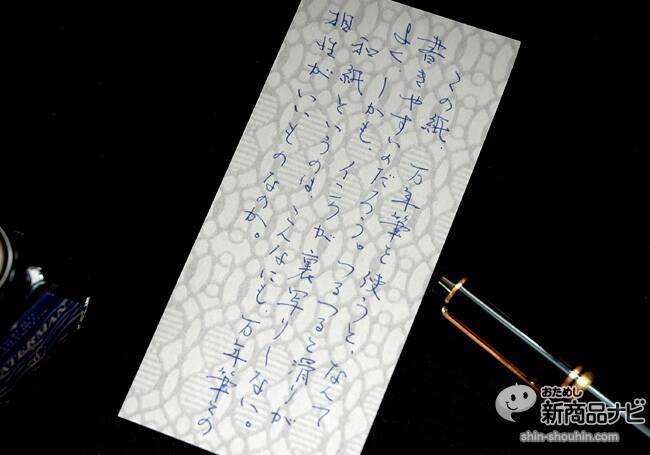 この紙、万年筆を使うと、なんて
書きやすいのだろう。つるつると滑りが
よく、しかも、インクが裏写りしない。
和紙というのは、こんなにも、万年筆との
相性がいいものなのか。
ATERMAN
おためし
新商品ナビ
shin-shouhin.com